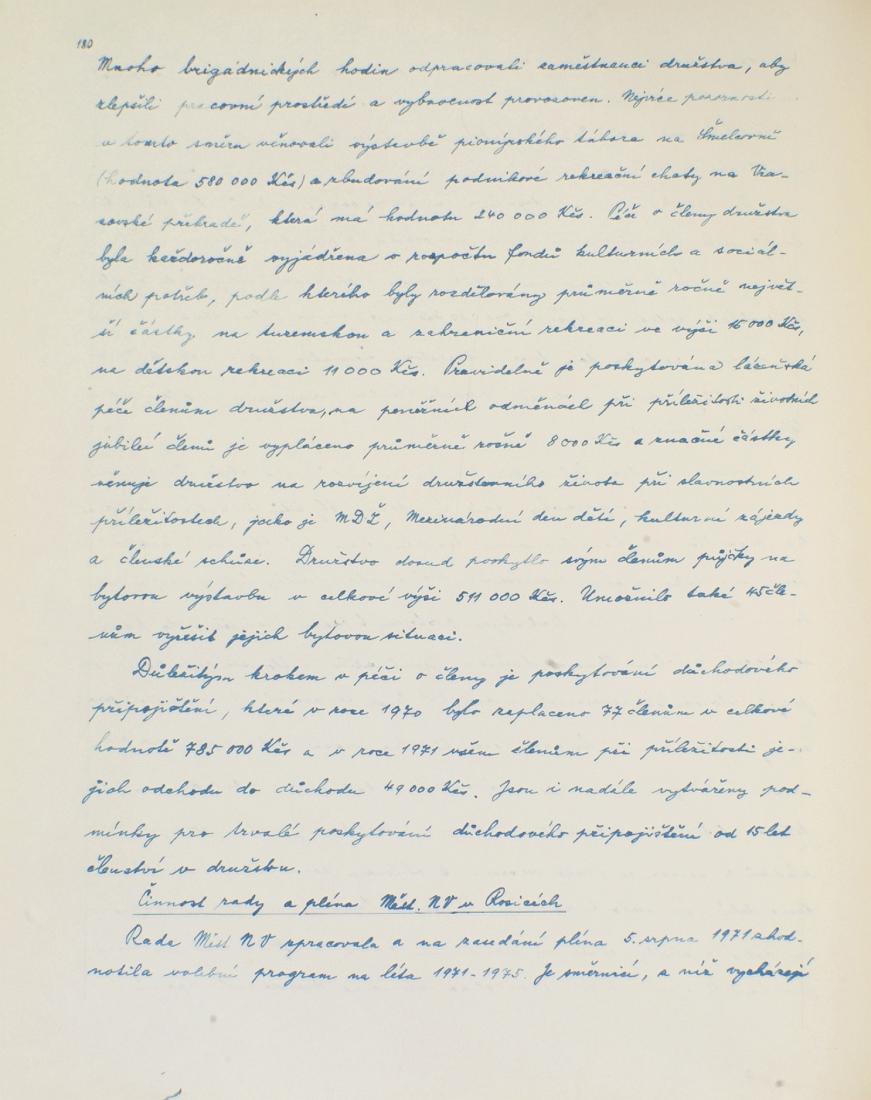 180
Mnoho brigádnických hodin odpracovali zaměstnanci družstva, aby
zlepšili pracovní prostředí a vybavenost provozoven. Nejvíce pozornosti
v tomto směru věnovali výstavbě pionýrského tábora na Šmelcovně
(hodnota 580 000 Kčs) a zbudování podnikové rekreační chaty na Vra-
novské přehradě, která má hodnotu 240 000 Kčs. Péče o členy družstva
byla každoročně vyjádřena v rozpočtu fondů kulturních a sociál-
ních potřeb, podle kterého byly rozdělovány průměrně ročně největ-
ší částky na tuzemskou a zahraniční rekreaci ve výši 15 000 Kčs,
na dětskou rekreaci 11 000 Kčs. Pravidelně je poskytována lázeňská
péče členům družstva, na peněžních odměnách při příležitosti životních
jubileí členů je vypláceno průměrně ročně 8 000 Kčs a značné částky
věnuje družstvo na rozvíjení družstevního života při slavnostních
příležitostech, jako je MDŽ, Mezinárodní den dětí, kulturní zájezdy
a členské schůze. Družstvo dosud poskytlo svým členům půjčky na
bytovou výstavbu v celkové výši 511 000 Kčs. Umožnilo také 45 čle-
nům vyřešit jejich bytovou situaci.
Důležitým krokem v péči o členy je poskytování důchodového
připojištění, které v roce 1970 bylo zaplaceno 77 členům v celkové
hodnotě 785 000 Kčs a v roce 1971 všem členům při příležitosti je-
jich odchodu do důchodu 49 000 Kčs. Jsou i nadále vytvářeny pod-
mínky pro trvalé poskytování důchodového připojištění od 15 let
členství v družstvu.
Činnost rady a pléna Měst. NV v Rosicích
Rada Měst NV zpracovala a na zasedání pléna 5. srpna 1971 schod-
notila volební program na léta 1971-1975. Je směrnicí, z níž vycházejí